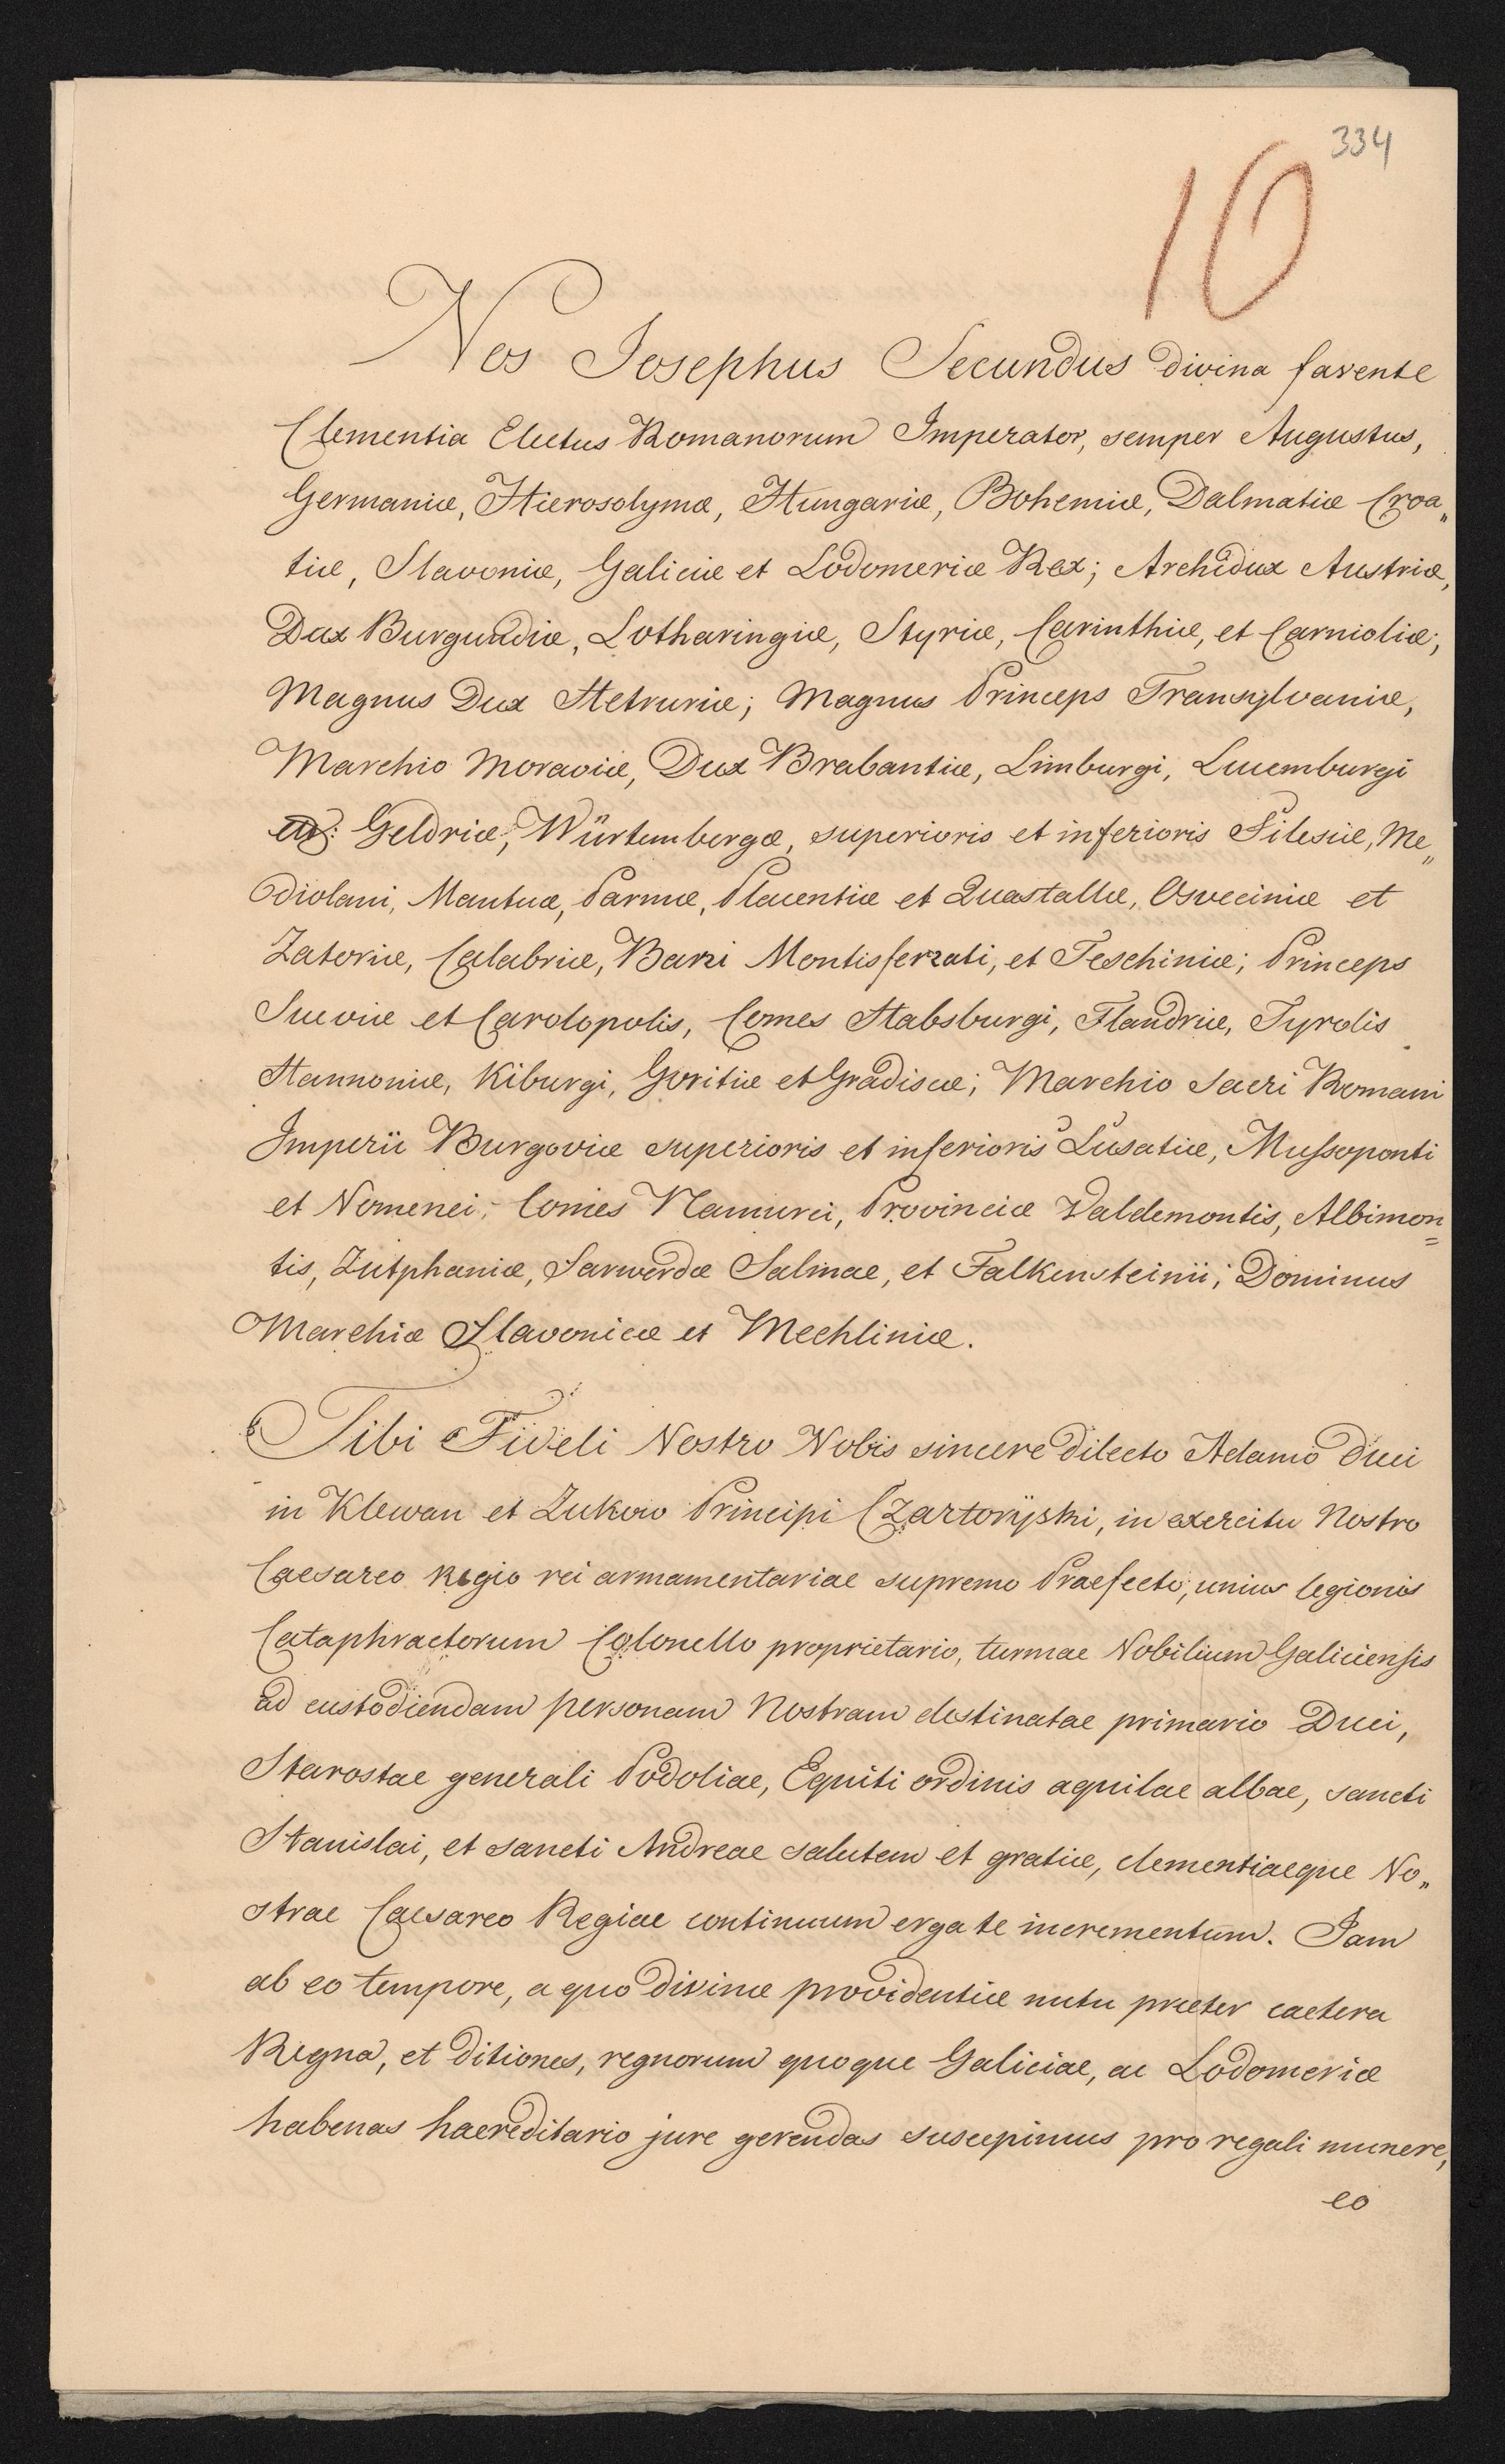 334
10
Nos Josephus Secundus divina favente
Clementia Electus Romanorum Imperator, semper Augustus,
Germaniæ, Hierosolymæ, Hungariæ, Bohemiæ, Dalmatiæ Croa„
tiæ, Slavoniæ, Galiciæ et Lodomeriæ Rex; Archidux Austriæ,
Dux Burgundiæ, Lotharingiæ, Styriæ, Carinthiæ, et Carnioliæ;
Magnus Dux Hetruriæ; Magnus Princeps Transylvaniæ,
Marchio Moraviæ, Dux Brabantiæ, Limburgi, Lucemburgi
Geldriæ, Würtembergæ, superioris et inferioris Silesiæ, Me„
diolani, Mantuæ, Parmæ, Placentiæ et Quastallæ, Osveciniæ et
Zatoriæ, Calabriæ, Barri Montisferrati, et Teschiniæ; Princeps
Sueviæ et Carolopolis, Comes Habsburgi, Flandriæ, Tyrolis
Hannoniæ, Kiburgi, Goritiæ et Gradiscæ; Marchio Sacri Romani
Imperii Burgoviæ superioris et inferioris Lusatiæ, Mussoponti
et Nomenei; Comes Namurci, Provinciæ Valdemontis, Albimon=
tis, Zutphaniæ, Sarwerdæ Salmae, et Falkensteinii; Dominus
Marchiæ Slavonicæ et Mechliniæ.
Tibi Fideli Nostro Nobis sincere dilecto Adamo Duci
in Klewan et Zukow Principi Czartoryski, in exercitu Nostro
Caesareo Regio rei armamentariae supremo Praefecto, unius legionis
Cataphractorum Colonello proprietario, turmae Nobilium Galiciensis
ad custodiendam personam Nostram destinatae primario Duci,
Starostae generali Podoliae, Equiti ordinis aquilae albae, sancti
Stanislai, et sancti Andreae salutem et gratiæ, clementiaeque No„
strae Caesareo Regiae continuum erga te incrementum. Jam
ab eo tempore, a quo divinæ providentiæ nutu præter caetera
Regna, et ditiones, regnorum quoque Galiciae, ac Lodomeriæ
habenas haereditario jure gerendas suscepimus pro regali munere,
eo